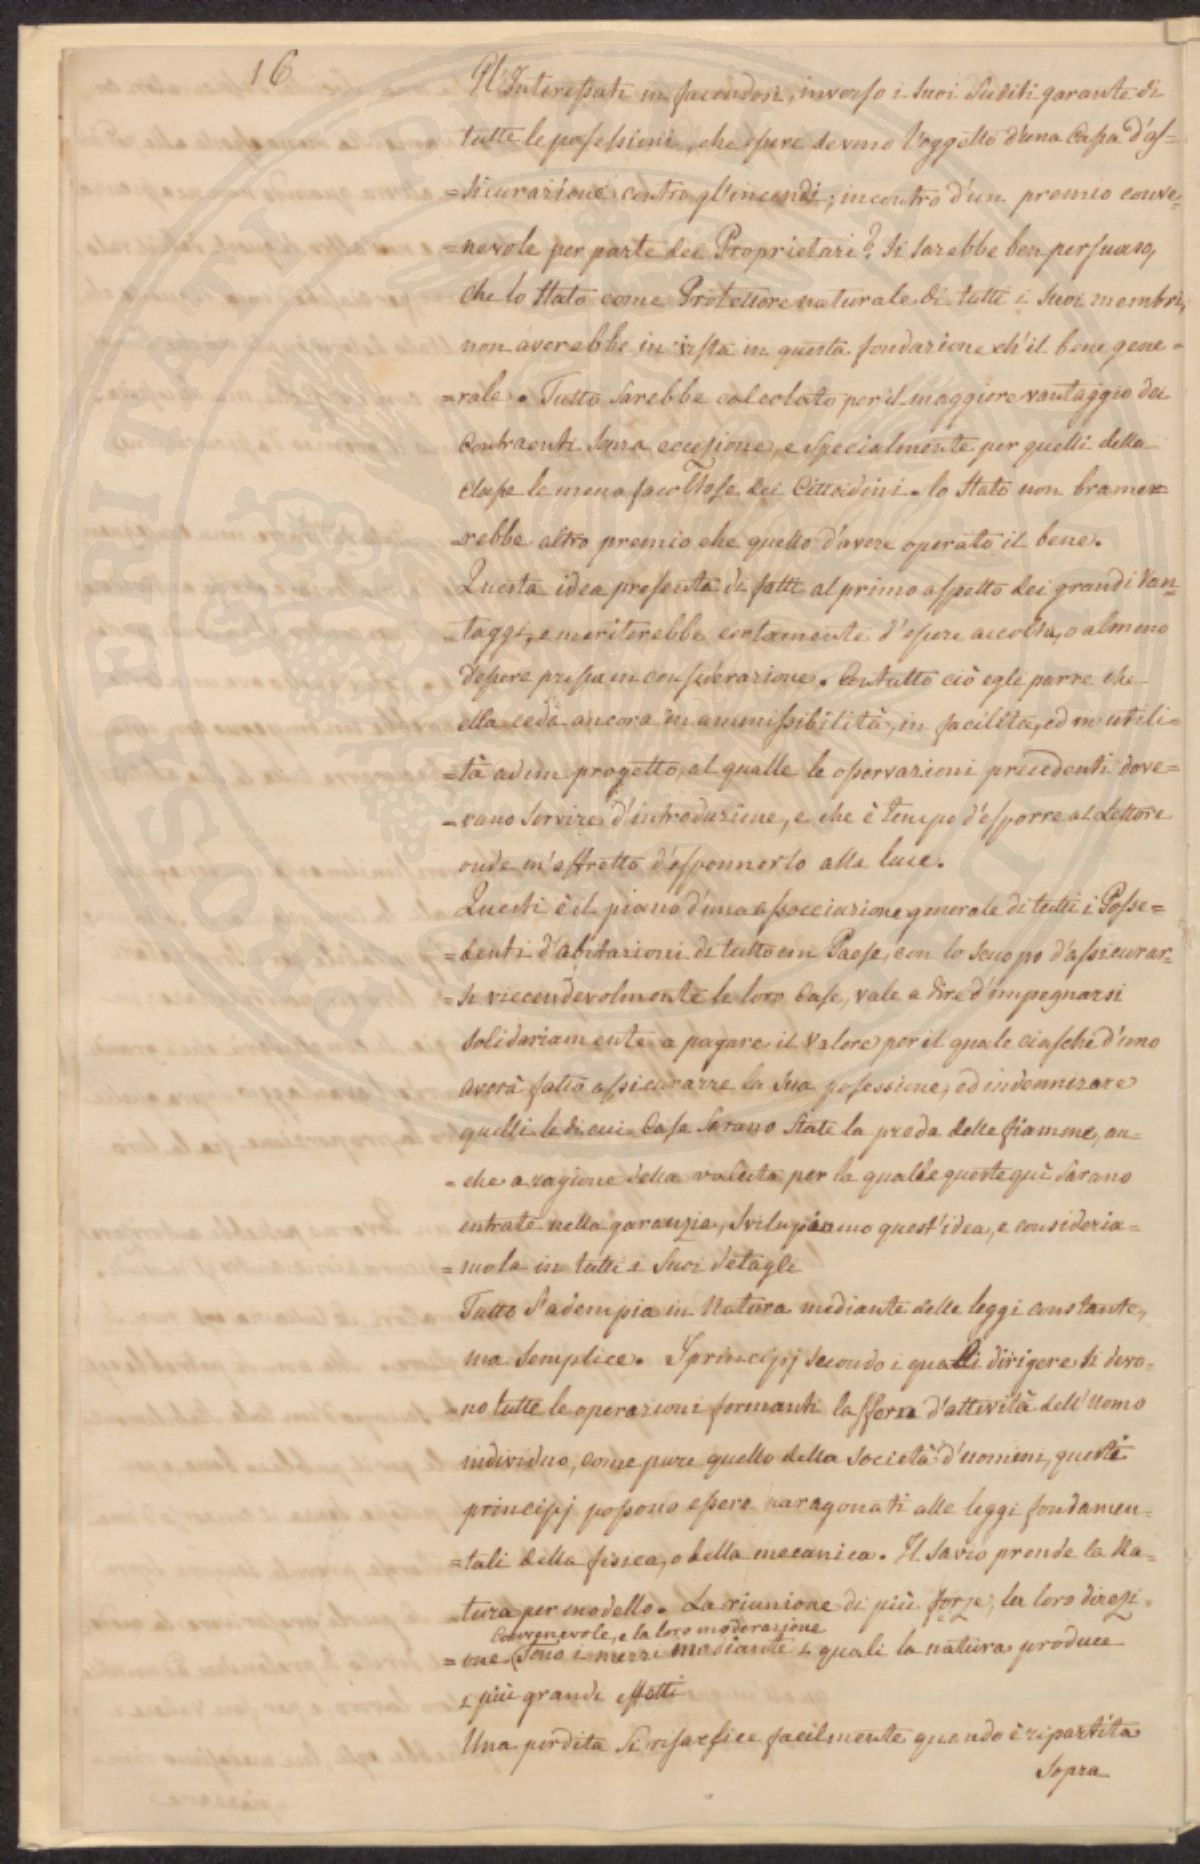 16
Gl'Interessati in facendosi, inverso i suoi Sudditi garante di
tutte le possessioni, che essere devono l'oggetto d'una Cassa d'as=
=sicurazione contro gl'incendi; incontro d'un premio conve=
=nevole per parte dei Proprietari? Si sarebbe ben persuaso,
che lo Stato come Protettore naturale di tutti i suoi membri,
non averebbe in vista in questa fondazione ch'il bene gene=
=rale. Tutto sarebbe calcolato per il maggiore vantaggio dei
Contraenti senza eccezione, e specialmente per quelli della
classe le meno facoltose dei Cittadini. lo Stato non brame=
=rebbe altro premio che quello d'avere operato il bene.
Questa idea presenta di fatti al primo aspetto dei grandi Van=
=taggi, e meriterebbe certamente d'essere accolta, o almeno
d'essere presa in considerazione. Contutto ciò egli parre che
ella ceda ancora in ammissibilità, in facilità, ed in utili=
=tà ad un progetto, al qualle le osservazioni precedenti dove=
=vano servire d'introduzione, e che è tempo d'esporre al Lettore
onde m'affretto d'esponnerlo alla luce.
Questi è il piano d'una associazione generale di tutti i Posse=
=denti d'abitazioni di tutto un Paese, con lo scuopo d'assicurar=
=si viccendevolmente le loro Case, vale a dire d'impegnarsi
solidariamente a pagare il Valore per il quale ciasched'uno
averà fatto assicurarre la sua possessione, ed indennizare
quelli le di cui Case sarano state la preda delle fiamme, an=
=che a ragione della valuta per la qualle queste quì sarano
entrate nella garanzia, svilupiamo quest'idea, e consideria=
=mola in tutti i suoi detagli
Tutto s'adempia in Natura mediante delle leggi constante,
ma semplice. I principj secondo i qualli dirigere si devo=
=no tutte le operazioni formanti la sfera d'attività dell'Uomo
individuo, come pure quello della società d'uomini, questi
principj possono essere paragonati alle leggi fondamen=
=tali della fisica, o della mecanica. Il Savio prende la Na=
=tura per modello. La riunione di più forze, la loro direzi=
Convenevole, e la loro moderazione
=one sono i mezzi mediante i quali la natura produce
i più grandi effetti
Una perdita si risarsice facilmente quando è ripartita
sopra
PROSPERITATI PUBLICAE AUGENDAE